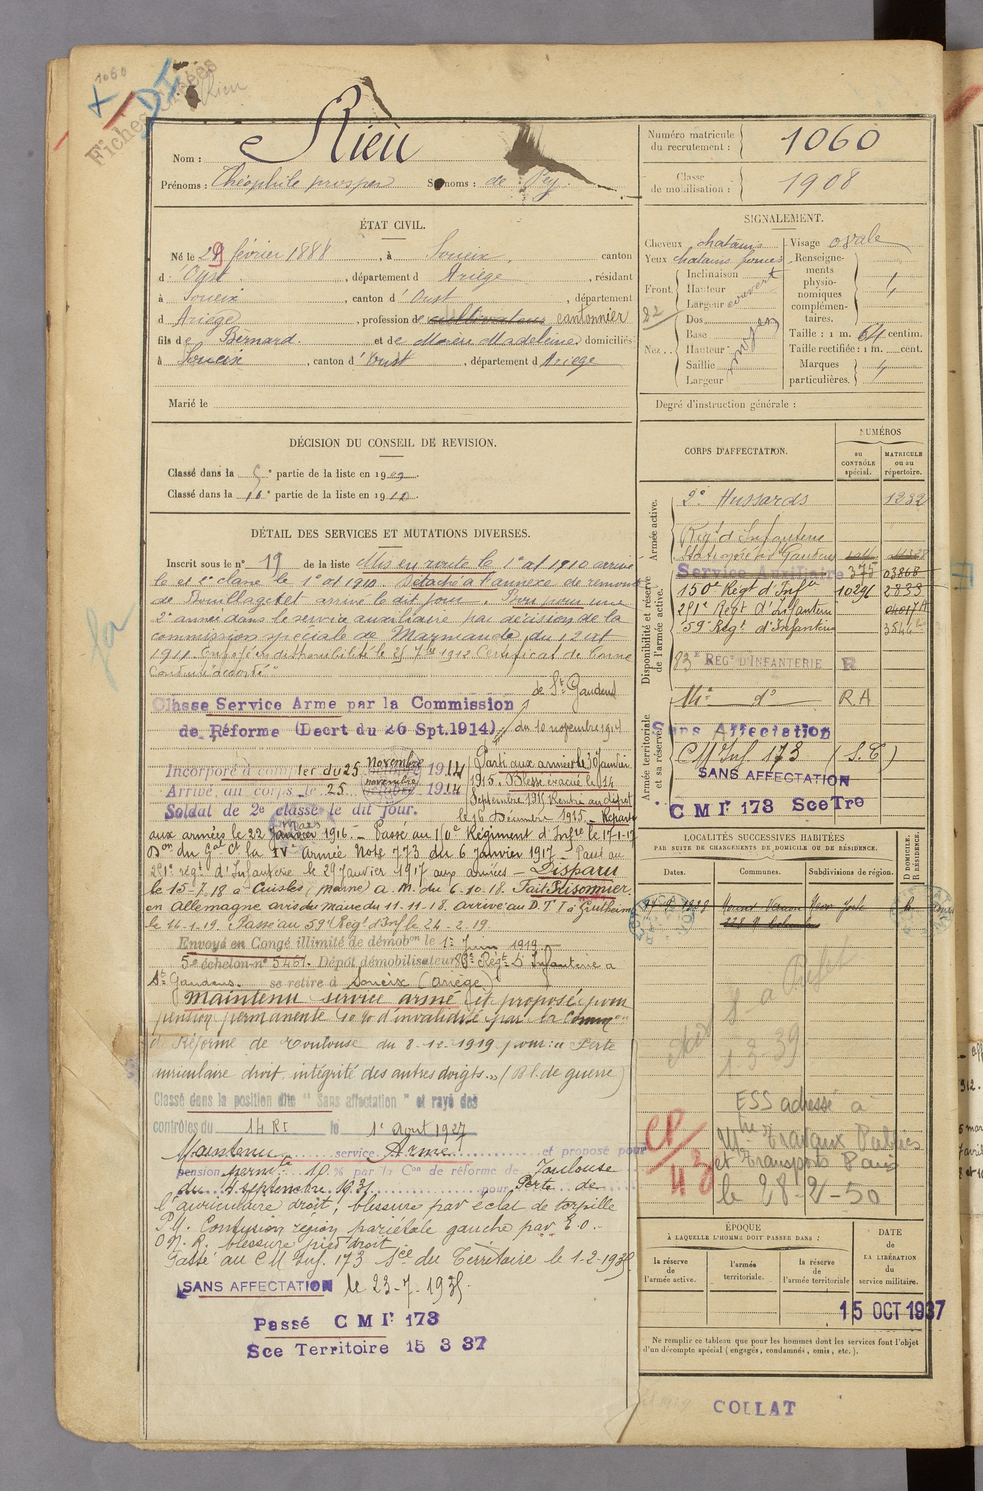 1060
DI
Fichés
Nom : Rieu
Prénoms : Théophile prosper Surnoms : de Rey.
Numéro matricule du recrutement : 1060
Classe de mobilisation : 1908
ÉTAT CIVIL.
Né le 29 février 1888, à Soueix, canton
d'Oust, département d Ariège, résidant
à Soueix, canton d'Oust, département
d Ariege, profession de cultivateur cantonnier
fils de Bernard. et de Madeleine domiciliés
à Soueix, canton d'Oust, département d Ariege
Marié le
SIGNALEMENT.
Cheveux chatains
Yeux chatains foncés
Front. Inclinaison
Hauteur
Largeur couvert
Nez.. Dos
Base moyen
Hauteur
Saillie
Largeur
Visage ovale
Renseignements physionomiques complémentaires.
Taille : 1 m. 64 centim.
Taille rectifiée : 1 m. cent.
Marques particulières.
Degré d'instruction générale :
DÉCISION DU CONSEIL DE REVISION.
Classé dans la 5e partie de la liste en 1909.
Classé dans la 1e partie de la liste en 1910.
DÉTAIL DES SERVICES ET MUTATIONS DIVERSES.
Inscrit sous le n° 19 de la liste Mis en route le 1er 8bre 1910 arrivé
le et 2e classe le 1er 8bre 1910. Détaché à l'annexe de remonte
de arrivé le dit jour. Passé pour une
2e année dans le service auxiliaire par décision de la
commission spéciale de Marmande du 12
1911. Envoyé en disponibilité le 25 7bre 1912 Certificat de bonne
Conduite "accordé"
Classe Service Arme par la Commission de St Gaudens
de Réforme (Decrt du 26 Spt.1914) du 10 novembre 1914
Incorporé à compter du 25 novembre 1914
Arrivé au corps le 25 novembre 1914
Soldat de 2e classe le dit jour.
Parti aux armées le 30 janvier
1915. Blessé évacué le 14
Septembre 1915 Rentré au dépôt
le 16 Décembre 1915. Reparti
aux armées le 22 mars 1916. – Passé au 150e Régiment d'Infie le 17-1-17
Don du Gal Ct la IVe armée Note 773 du 6 Janvier 1917 – Passé au
251e régt d'Infanterie le 29 janvier 1917 aux armées – Disparu
le 15-7-18 à Cuisles (Marne) A. M. du 6-10-18. Fait Prisonnier
en Allemagne avis du maire du 11.11.18. arrivé au D.T.I à
le 14-1-19. Passé au 59e Régt d'Inf le 24-2-19.
Envoyé en Congé illimité de démobon le 1er Juin 1919.
5e échelon n° 5461. Dépôt démobilisateur 83e Régt d'Infanterie à
St Gaudens. se retire à Soueix (ariège)
Maintenu service armé et proposé pour
pension permanente 10 % d'invalidité par la Common
de Réforme de Toulouse du 8-12-1919 pour : "Perte
auriculaire droit, intégrité des autres doigts.." (Bl. de guerre)
Classé dans la position dite "Sans affectation" et rayé des
contrôles du 14 RI le 1er Aout 1927
Maintenu service Armé et proposé pour
pension permte 10 % par la Con de réforme de Toulouse
du 4 septembre 1931 pour Perte de
l'auriculaire droit, blessure par éclat de torpille
P.M. Contusion région pariétale gauche par E.O.
O.N.R. blessure pied droit
Passé au C M Inf. 173 Sce du Territoire le 1-2-1935
SANS AFFECTATION le 23-7-1935.
Passé C M Ie 173
Sce Territoire 15 3 37
CORPS D'AFFECTATION.
NUMÉROS
au CONTRÔLE spécial.
MATRICULE ou au répertoire.
Armée active.
2e Hussards 1232
Régt d'Infanterie
Disponibilité et réserve de l'armée active.
Service Auxiliaire 375 03868
150e Régt d'Infie 10296 2833
251e Regt d'Infanterie
59e Régt d'Infanterie
83e REGt D'INFANTERIE R
Armée territoriale et sa réserve.
Me do R.A
Sans Affectation
CM Inf. 173 (S.T)
SANS AFFECTATION
C M Ie 173 Sce Tre
LOCALITÉS SUCCESSIVES HABITÉES
PAR SUITE DE CHANGEMENTS DE DOMICILE OU DE RÉSIDENCE.
Dates. Communes. Subdivisions de région. D DOMICILE. R RÉSIDENCE.
1928 Mount Vernon New York
1-3-39
ESS adressé à
Mre Travaux Publics
et Transports Paris
le 28-2-50
CP 43
ÉPOQUE
À LAQUELLE L'HOMME DOIT PASSER DANS :
la réserve de l'armée active.
l'armée territoriale.
la réserve de l'armée territoriale
DATE de la LIBÉRATION du service militaire.
15 OCT 1937
Ne remplir ce tableau que pour les hommes dont les services font l'objet
d'un décompte spécial (engagés, condamnés, omis, etc.).
COLLAT